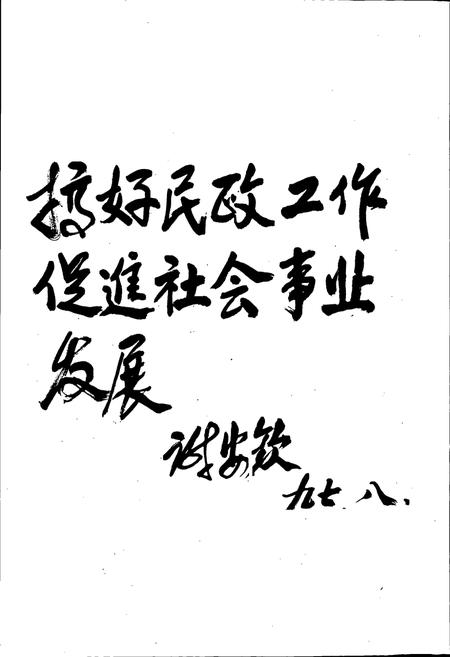 搞好民政工作
促進社会事业
发展
谢安钦
九七.八.